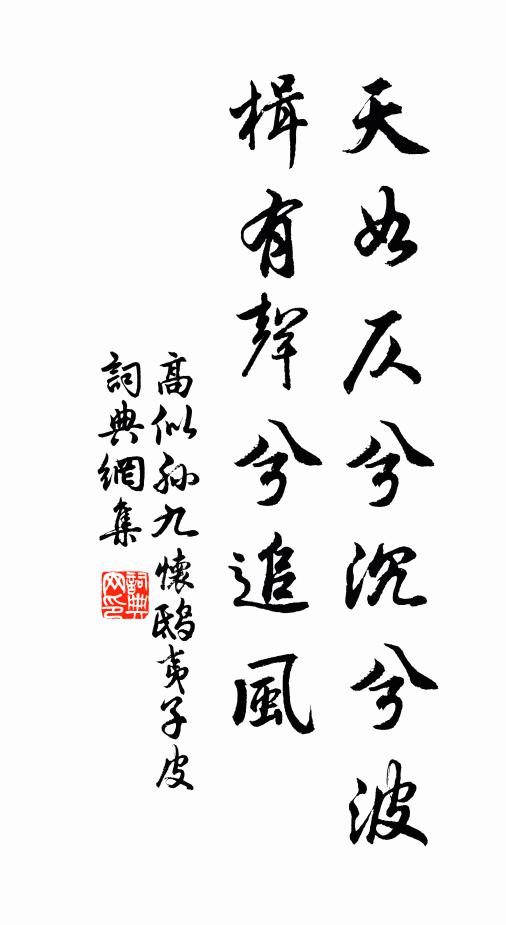 天如仄兮沉兮波
楫有聲兮追風
高似孫九懷鴟夷子皮
詞典網集
詞典網印